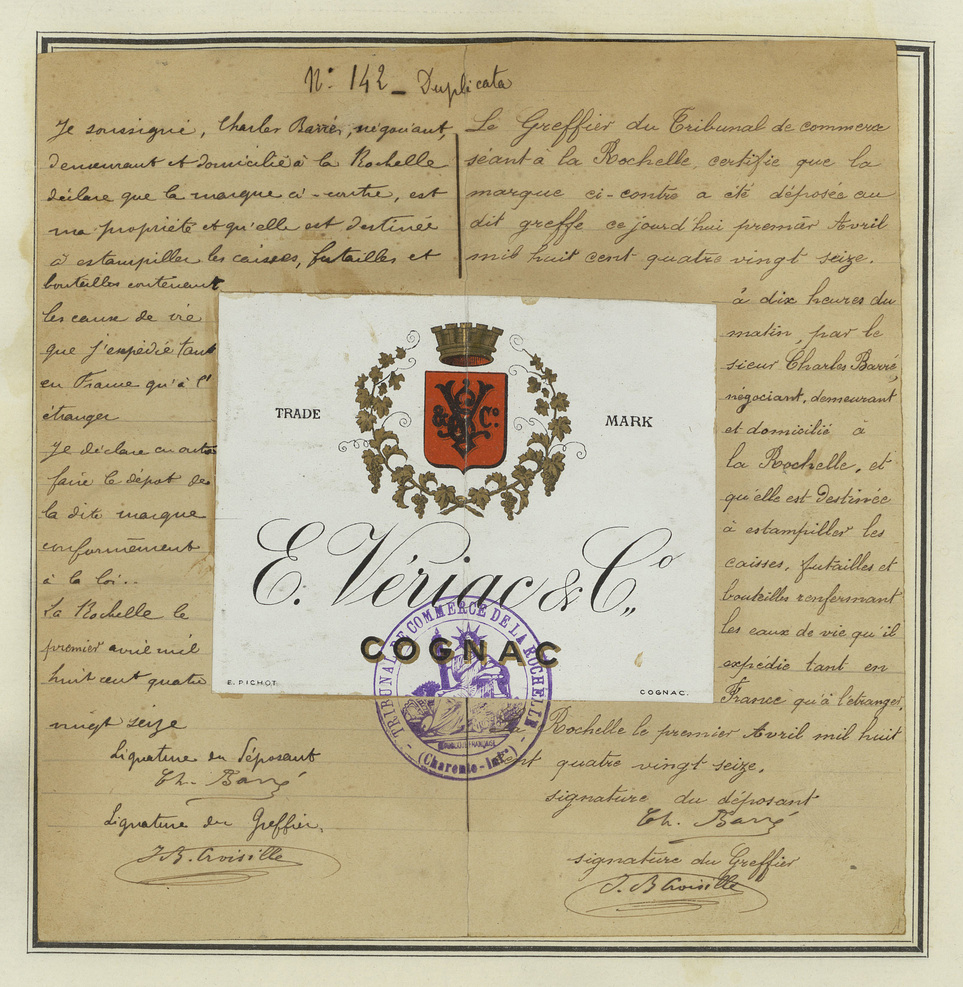 N° 142 _ Duplicata
Je soussigné, Charles Barré, négociant,
demeurant et domicilié à la Rochelle
déclare que la marque ci-contre, est
ma propriété et qu'elle est destinée
à estampiller les caisses, futailles et
bouteilles contenant
les eaux de vie
que j'expédie tant
en France qu'à l'
étranger
Je déclare en outre
faire le dépot de
la dite marque
conformément
à la loi..
La Rochelle le
premier avril mil
huit cent quatre
vingt seize
Signature du Déposant
Ch. Barré
Signature du Greffier.
J. B. Croisille
Le Greffier du Tribunal de commerce
séant à la Rochelle, certifie que la
marque ci-contre a été déposée au
dit greffe ce jourd'hui premier Avril
mil huit cent quatre vingt seize.
à dix heures du
matin, par le
sieur Charles Barré,
négociant, demeurant
et domicilié à
la Rochelle, et
qu'elle est destinée
à estampiller les
caisses, futailles et
bouteilles renfermant
les eaux de vie qu'il
expédie tant en
France qu'à l'étranger.
Rochelle le premier Avril mil huit
cent quatre vingt seize.
signature du déposant
Ch. Barré
signature du Greffier
J. B Croisille
TRADE MARK
& Co.
E. Vériac & Co
COGNAC
E. PICHOT.
COGNAC.
TRIBUNAL DE COMMERCE DE LA ROCHELLE
(Charente-Infre)